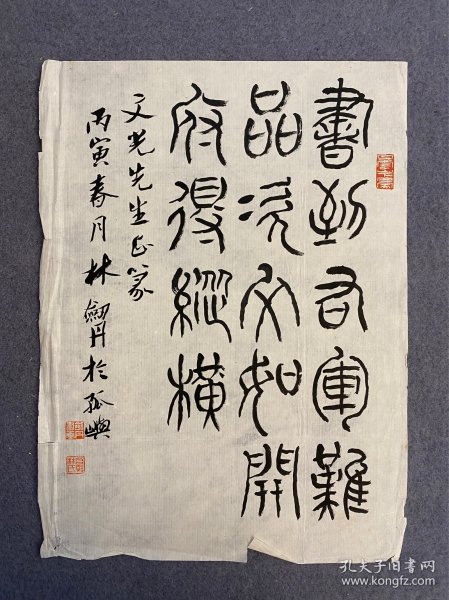 書到右軍難
品次文如開
府得縱橫
文光先生正篆
丙寅春月林劍丹於孤嶼
孔夫子旧书网
www.kongfz.com